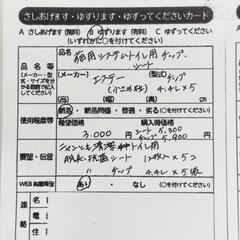 さしあげます・ゆずります・ゆずってくださいカード
A さしあげます(無料) B ゆずります(有料) C ゆずってください
(いずれかに○を付けてください)
品名等
(メーカー・型式・サイズを分かる範囲で記入してください)
猫用システムトイレ用チップ、シート
(メーカー) (型式)
エステー チップ
(小さめ粒) 4.4L×5
使用程度等
新品・新品同様・普通・劣る(○を付けてください)
希望価格 購入時価格
3,000円 シート 5,300
チップ 5,900円
要望・伝言
ニャンとも清潔トイレ用
脱臭・抗菌シート 12枚入×5コ
チップ 4.4L×5袋
WEB掲載希望
あり・なし(○を付けてください)
連絡
氏名
電話
住